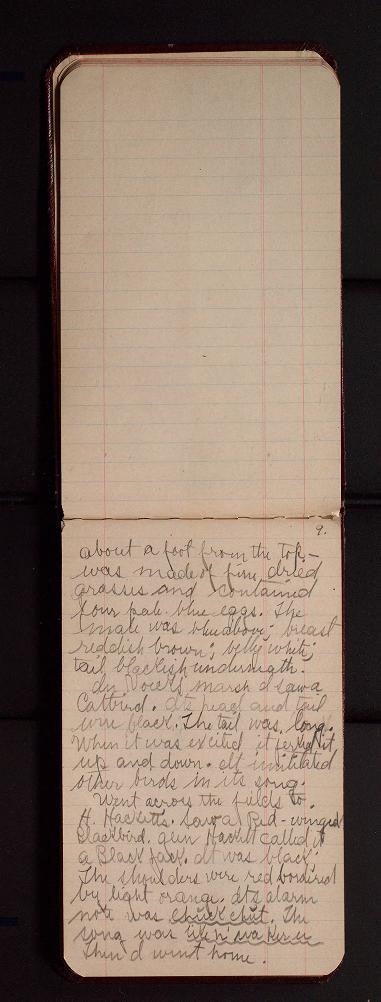 9.
about a foot from the top-
was made of fine dried
grasses and contained
four pale blue eggs. The
male was blue above; breast
reddish brown; belly white;
tail blackish underneath.
In marsh I saw a
Catbird. Its head and tail
were black. The tail was long.
When it was excited it jerked it
up and down. It imitated
other birds in its song.
Went across the fields to
H. Hacketts. Saw a Red-winged
Blackbird. Hackett called it
a Black Jack. It was black;
The shoulders were red bordered
by light orange. Its alarm
note was chuck chut. The
song was
Then I went home.